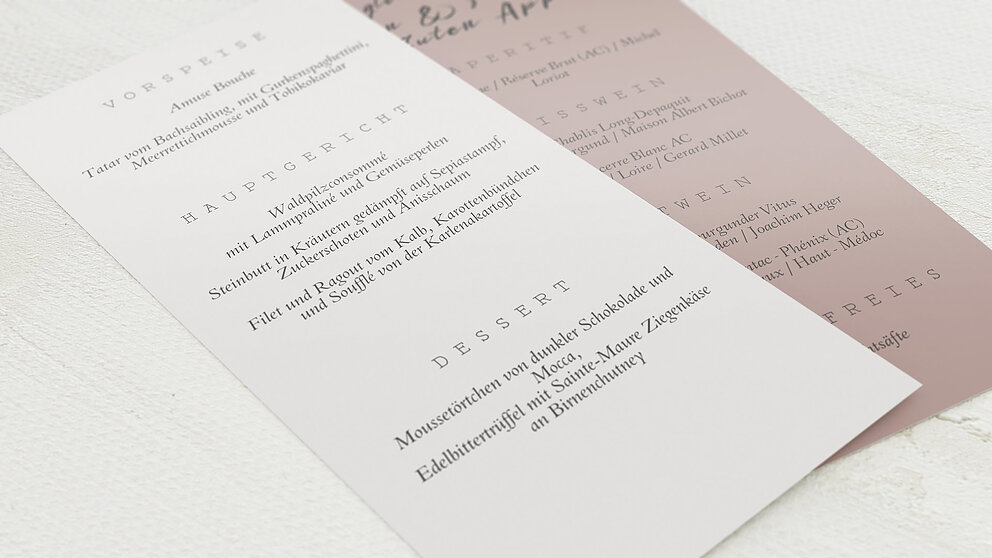 VORSPEISE
Amuse Bouche
Tatar vom Bachsaibling, mit Gurkenspaghettini,
Meerrettichmousse und Tobikokaviar
HAUPTGERICHT
Waldpilzconsommé
mit Lammpraliné und Gemüseperlen
Steinbutt in Kräutern gedämpft auf Sepiastampf,
Zuckerschoten und Anisschaum
Filet und Ragout vom Kalb, Karottenbündchen
und Soufflé von der Karlenakartoffel
DESSERT
Moussetörtchen von dunkler Schokolade und
Mocca,
Edelbittertrüffel mit Sainte-Maure Ziegenkäse
an Birnenchutney
&
Guten App
APERITIF
/ Réserve Brut (AC) / Michel
Loriot
ISSWEIN
Chablis Long-Depaquit
rgund / Maison Albert Bichot
cerre Blanc AC
/ Loire / Gerard Millet
WEIN
urgunder Vitus
den / Joachim Heger
atac - Phénix (AC)
ux / Haut - Médoc
FREIES
tsäfte